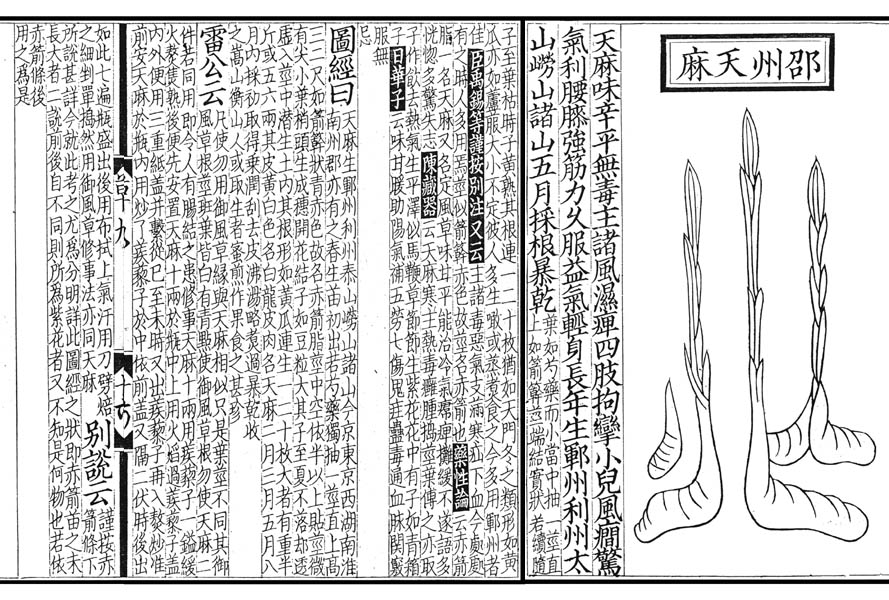 邵州天麻
天麻味辛平無毒主諸風濕痹四肢拘攣小兒風癇驚
氣利腰膝強筋力久服益氣輕身長年生鄆州利州太
山嶗山諸山五月採根暴乾
葉如芍藥而小當中抽一莖直
上如箭簳莖端結實狀若續隨
子至葉枯時子黃熟其根連一二十枚猶如天門冬之類形如黃
瓜亦如蘆服大小不定彼人多生噉或蒸煮食之今多用鄆州者
佳臣禹錫等謹按別注又云主諸毒惡氣支滿寒疝下血今處處
有之時人多用焉莖似箭簳赤色故莖名赤箭也藥性論云赤箭
脂一名天麻又名定風草味甘平能治冷氣痹攤緩不遂語多
恍惚多驚失志陳藏器云天麻寒主熱毒癰腫搗莖葉傅之亦取
子作飲去熱氣生平澤似馬鞭草節節生紫花花中有子如青葙
子日華子云味甘暖助陽氣補五勞七傷鬼疰蠱毒通血脉開竅
服無
忌
圖經曰
天麻生鄆州利州泰山嶗山諸山今京東京西湖南淮
南州郡亦有之春生苗初出若芍藥獨抽一莖直上高
三二尺如箭簳狀青赤色故名赤箭脂莖中空依半以上貼莖微
有尖小葉梢頭生成穗開花結子如豆粒大其子至夏不落却透
虛入莖中潛生土内其根形如黃瓜連生一二十枚大者有重半
斤或五六兩其皮黃白色名白龍皮肉名天麻二月三月五月八
月内採初取得乘潤刮去皮沸湯略煮過暴乾收
之嵩山衡山人或取生者蜜煎作果食之甚珍
雷公云
凡使勿用御風草緣與天麻相似只是葉莖不同其御
風草根莖斑葉皆白有青點使御風草根勿使天麻二
件若同用即令人有腸結之患修事天麻十兩用蒺藜子一鎰緩
火熬焦熟後便先安置天麻十兩於瓶中上用火熬過蒺藜子蓋
内外便用三重紙蓋并繫從巳至未時又出蒺藜子再入熬炒准
前安天麻於瓶内用炒了蒺藜子於中依前蓋又隔一伏時後出
草九
如此七遍瓶盛出後用布拭上氣汗用刀劈焙
之細剉單搗然用御風草修事法亦同天麻
別說云
謹按赤
箭條下
所說甚詳今就此考之尤為分明詳此圖經之狀即赤箭苗之未
長大者二說前後自不同則所為紫花者又不知是何物也若依
赤箭條後
用之為是